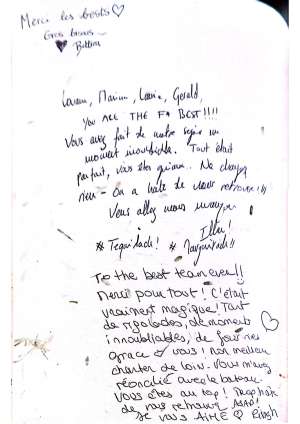 Merci les bests ♡
Gros bisous
Bettina
Marion, Gerald,
YOU ALL THE F* BEST!!!!
Vous avez fait de notre séjour un
moment inoubliable. Tout était
parfait, vous êtes géniaux.. Ne changez
rien - On a hâte de vous retrouver !!!
Vous allez nous manquer
# Tequilado! #
To the best team ever!!
Merci pour tout! C'était
vraiment magique! Tant
de rigolades, de moments
innoubliables, de fous ries
grace à vous! mon meilleur
charter de loin. Vous m'avez
réconcilié avec le bateau.
Vous êtes au top! Trop hate
de vous retrouver ASAP!
Je vous AIME ♡